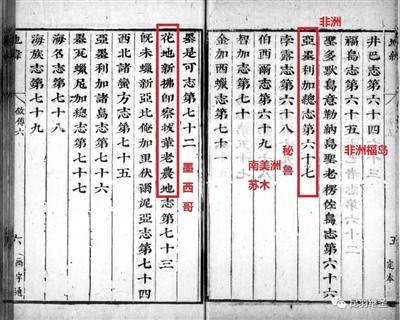 井巴志第六十四
福島志第六十五
聖多默島意勒納島聖老楞佐島志第六十六
亞墨利加總志第六十七
孛露志第六十八
伯西爾志第六十九
智加志第七十
金加西蠟志第七十一
五
定本
非洲
非洲福岛
秘鲁
南美洲
苏木
墨是可志第七十二
花地新拂郎察拔革老農地志第七十三
既未蠟新亞比俺加里伏爾泥亞志第七十四
西北諸蠻方志第七十五
亞墨利加諸島志第七十六
墨瓦蠟尼加總志第七十七
海名志第七十八
海族志第七十九
墨西哥
地緯
敘傳六
六